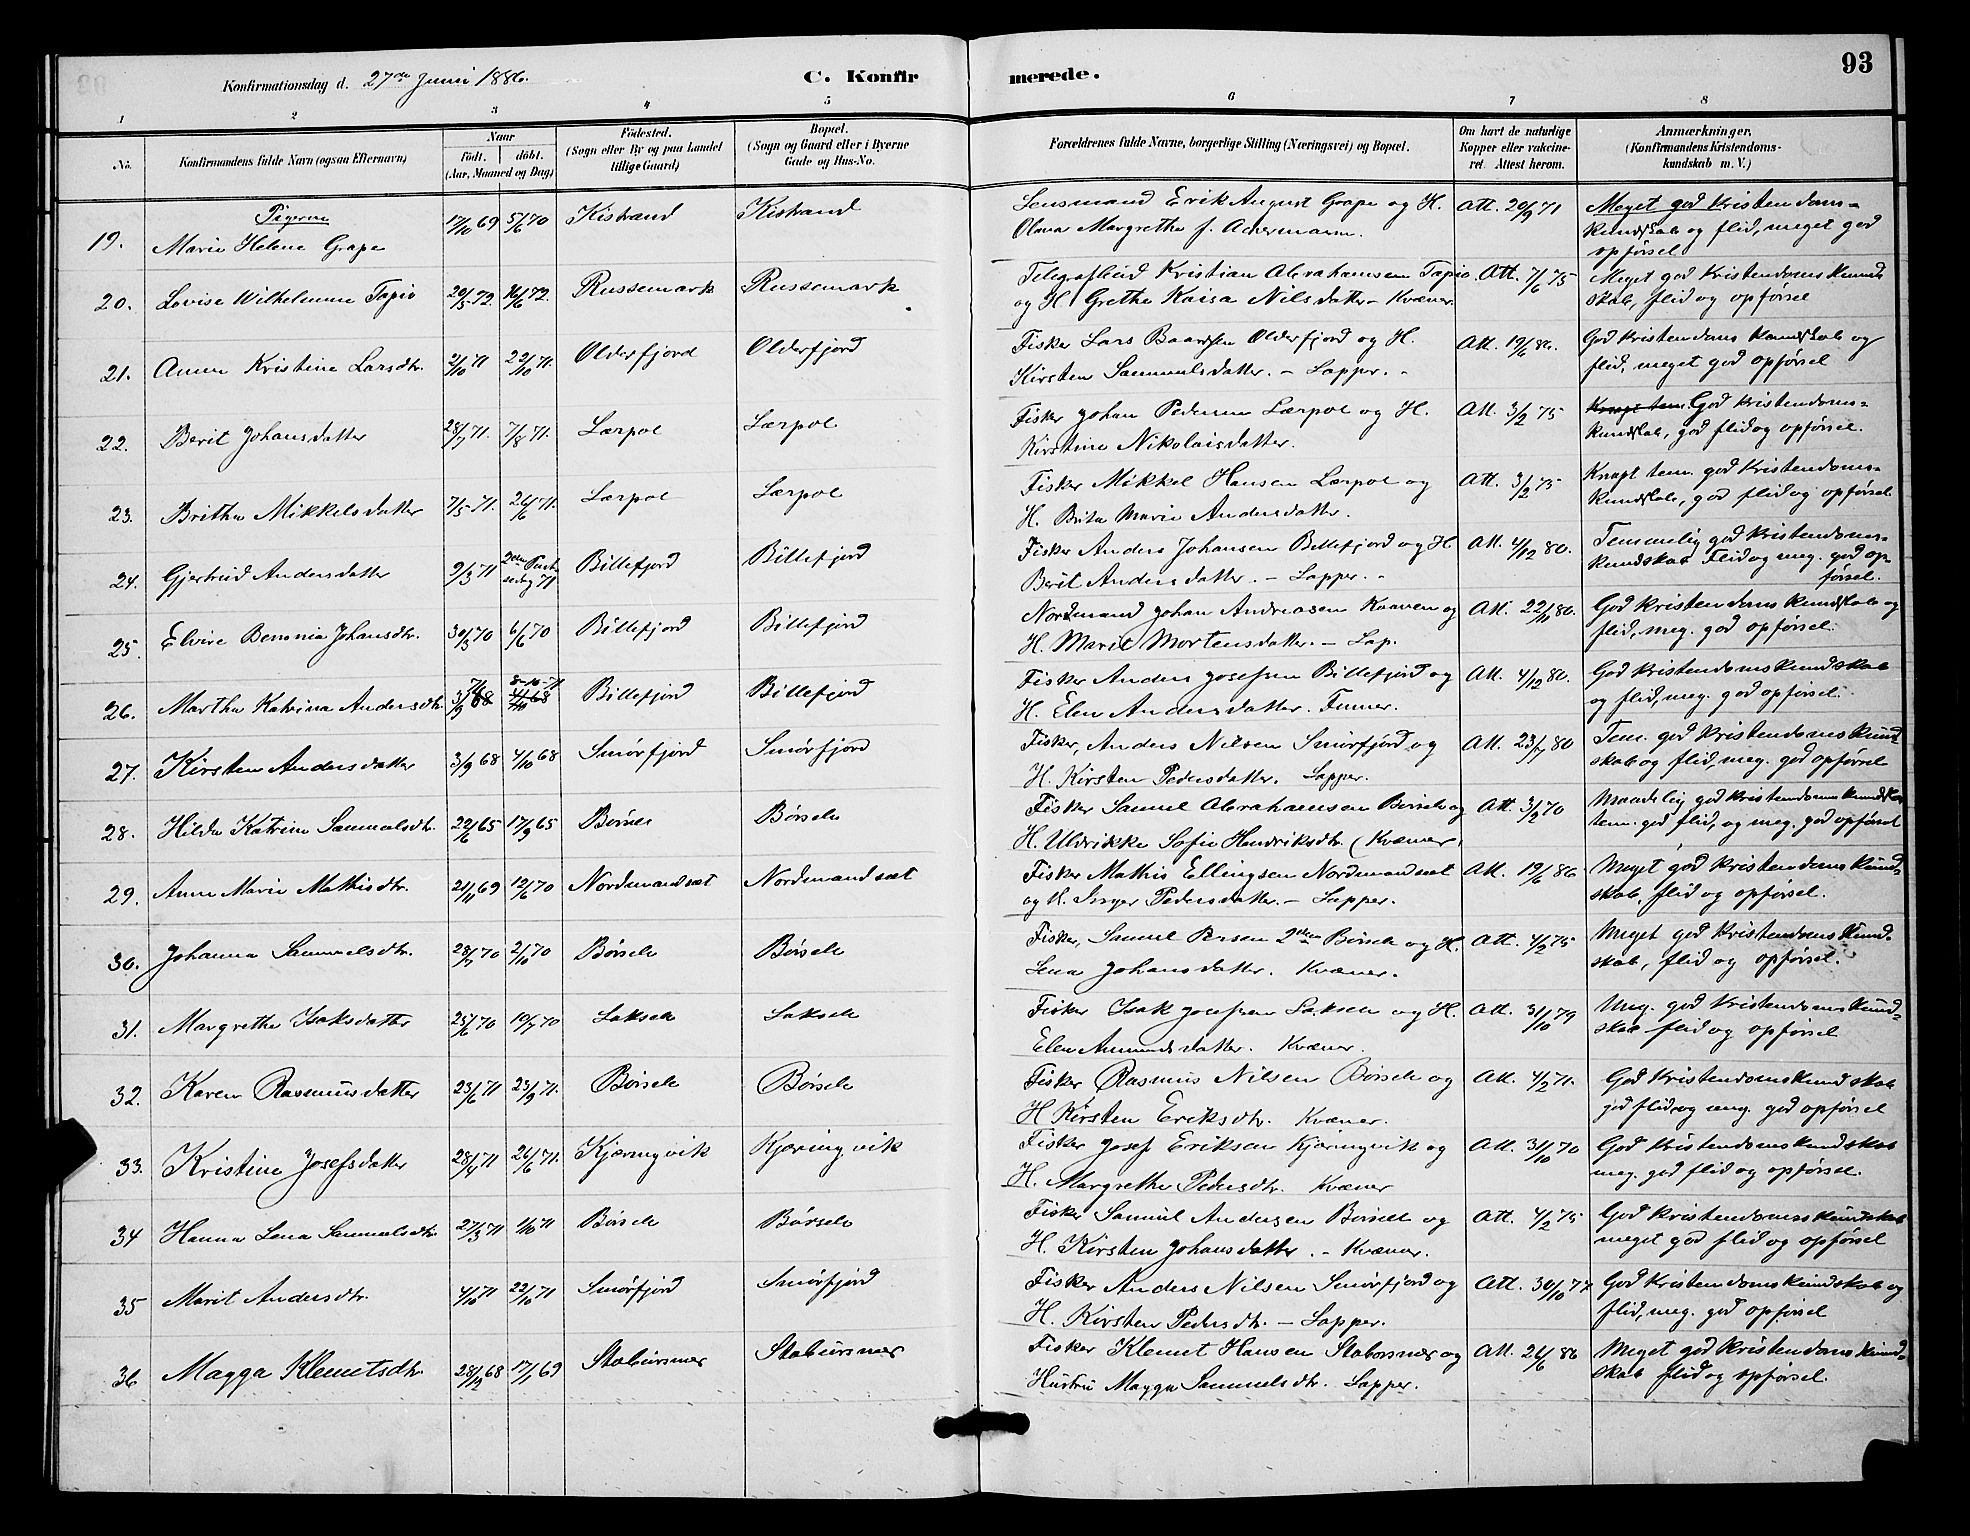 Konfirmationsdag d. 27de Juni 1886. C. Konfirmerede. 93
1 2 3 4 5 6 7 8
No. Konfirmandens fulde Navn (ogsaa Efternavn) Naar födt. döbt. (Aar, Maaned og Dag) Födested. (Sogn eller By og paa Landet tillige Gaard) Bopæl. (Sogn og Gaard eller i Byerne Gade og Hus-No. Forældrenes fulde Navne, borgerlige Stilling (Næringsvei) og Bopæl. Om havt de naturlige Kopper eller vakcineret. Attest herom. Anmærkninger, (Konfirmandens Kristendomskundskab m. V.)
Pigerne
19. Marie Helene Grape 17/10 69 5/6 70 Kistrand Kistrand Lensmand Erik August Grape og H. Att. 20/9 71 Meget god Kristendoms-
Olava Margrethe f. Ackermann. kundskab og flid, meget god
opførsel
20. Lovise Wilhelmine Tapio 20/5 72 16/6 72. Russemark Russemark Telegrafbud Kristian Abrahamsen Tapio Att. 7/6 75 Meget god Kristendomskund-
og H. Grethe Kaisa Nilsdatter - Kvæner. skab, flid og opførsel
21. Anne Kristine Larsdtr. 2/10 71 22/10 71. Olderfjord Olderfjord Fisker Lars Baardsen Olderfjord og H. Att. 19/6 86. God Kristendomskundskab og
Kirsten Samuelsdatter. - Lapper. - flid, meget god opførsel
22. Berit Johansdatter 28/7 71. 7/8 71. Lærpol Lærpol Fisker Johan Pedersen Lærpol og H. Att. 3/2 75 Knapt tem. God Kristendoms-
Kirstine Nikolaisdatter. kundskab, god flid og opførsel.
23. Britha Mikkelsdatter 7/5 71. 26/6 71. Lærpol Lærpol Fisker Mikkel Hansen Lærpol og Att. 3/2 75 Knapt tem. god Kristendoms-
H. Brita Marie Andersdatter. kundskab, god flid og opførsel
24. Gjertrud Andersdatter 9/3 71 2den Pintsedag 71 Billefjord Billefjord Fisker Anders Johansen Billefjord og H. Att. 4/12 80. Temmelig god Kristendoms-
Berit Andersdatter. - Lapper. - kundskab Flid og meg. god op-
førsel.
25. Elvire Bennnia Johansdtr. 30/3 70 6/6 70 Billefjord Billefjord Nordmand Johan Andreasen Kaaven og Att. 22/11 80. God Kristendomskundskab og
H. Marit Mortensdatter. - Lap. flid, meg. god opførsel.
26. Martha Katrina Andersdtr. 3/9 68 71 4/10 68 8-10-71 Billefjord Billefjord Fisker Anders Josefsen Billefjord og Att. 4/12 80. God Kristendomskundskab
H. Elen Andersdatter. Finner. og flid, meg. god opførsel.
27. Kirsten Andersdatter 3/9 68 4/10 68 Smørfjord Smørfjord Fisker, Anders Nilsen Smørfjord og Att. 23/7 80 Tem. god Kristendomskund-
H. Kirsten Pedersdatter. Lapper. skab og flid, meg. god opførsel
28. Hilda Katrine Samuelsdtr. 22/6 65 17/9 65 Børsel Børselv Fisker Samul Abrahamsen Børselv og Att 3/2 70 Maadelig god Kristendomskundskab
H. Uldrikke Sofie Hendriksdtr. (Kvæner) tem. god flid, og meg. god opførsel
29. Anne Marie Mathisdtr. 21/11 69 12/6 70 Nordmandsæt Nordmandsæt Fisker Mathis Ellingsen Nordmandsæt Att. 19/6 86. Meget god Kristendomskund-
og H. Inger Pedersdatter. - Lapper. skab, flid og opførsel.
30. Johanna Samuelsdtr. 28/7 70 2/10 70 Børselv Børselv Fisker, Samul Persen 2den Børselv og H. Att. 4/2 75 Meget god Kristendomskund-
Lena Johansdatter. Kvæner. skab, flid og opførsel.
31. Margrethe Isaksdatter 25/6 70 10/7 70 Lakselv Lakselv Fisker Isak Josefsen Lakselv og H. Att. 31/10 79 Meg. god Kristendomskund-
Elen Amundsdatter. Kvæner. skab flid og opførsel
32. Karen Rasmusdatter 23/6 71 23/9 71. Børselv Børselv Fisker Rasmus Nilsen Børselv og Att. 4/2 71. God Kristendomskundskab
H Kirsten Eriksdtr. Kvæner. god flid og meg. god opførsel
33. Kristine Josefsdatter 28/4 71 26/6 71. Kjæringvik Kjæringvik Fisker Josef Eriksen Kjæringvik og Att. 31/10 70 God Kristendomskundskab
H. Margrethe Pedersdtr. Kvæner meg. god flid og opførsel.
34 Hanna Lena Samuelsdtr. 27/3 71 1/10 71 Børselv Børselv Fisker Samul Andersen Børselv og Att. 4/2 75 God Kristendomskundskab
H. Kirsten Johansdatter. - Kvæner. meget god flid og opførsel
35 Marit Andersdtr. 4/10 71 22/10 71 Smørfjord Smørfjord Fisker Anders Nilsen Smørfjord og Att. 30/10 77 God Kristendomskundskab og
H. Kirsten Pedersdtr. - Lapper. flid, meg. god opførsel
36 Magga Klemetsdtr. 28/12 68 17/1 69 Stabursnær Stabursnær Fisker Klemet Hansen Staborsnær og Att. 26/6 86 Meget god Kristendomskund-
Hustru Magga Samuelsdtr. Lapper. skab flid og opførsel.